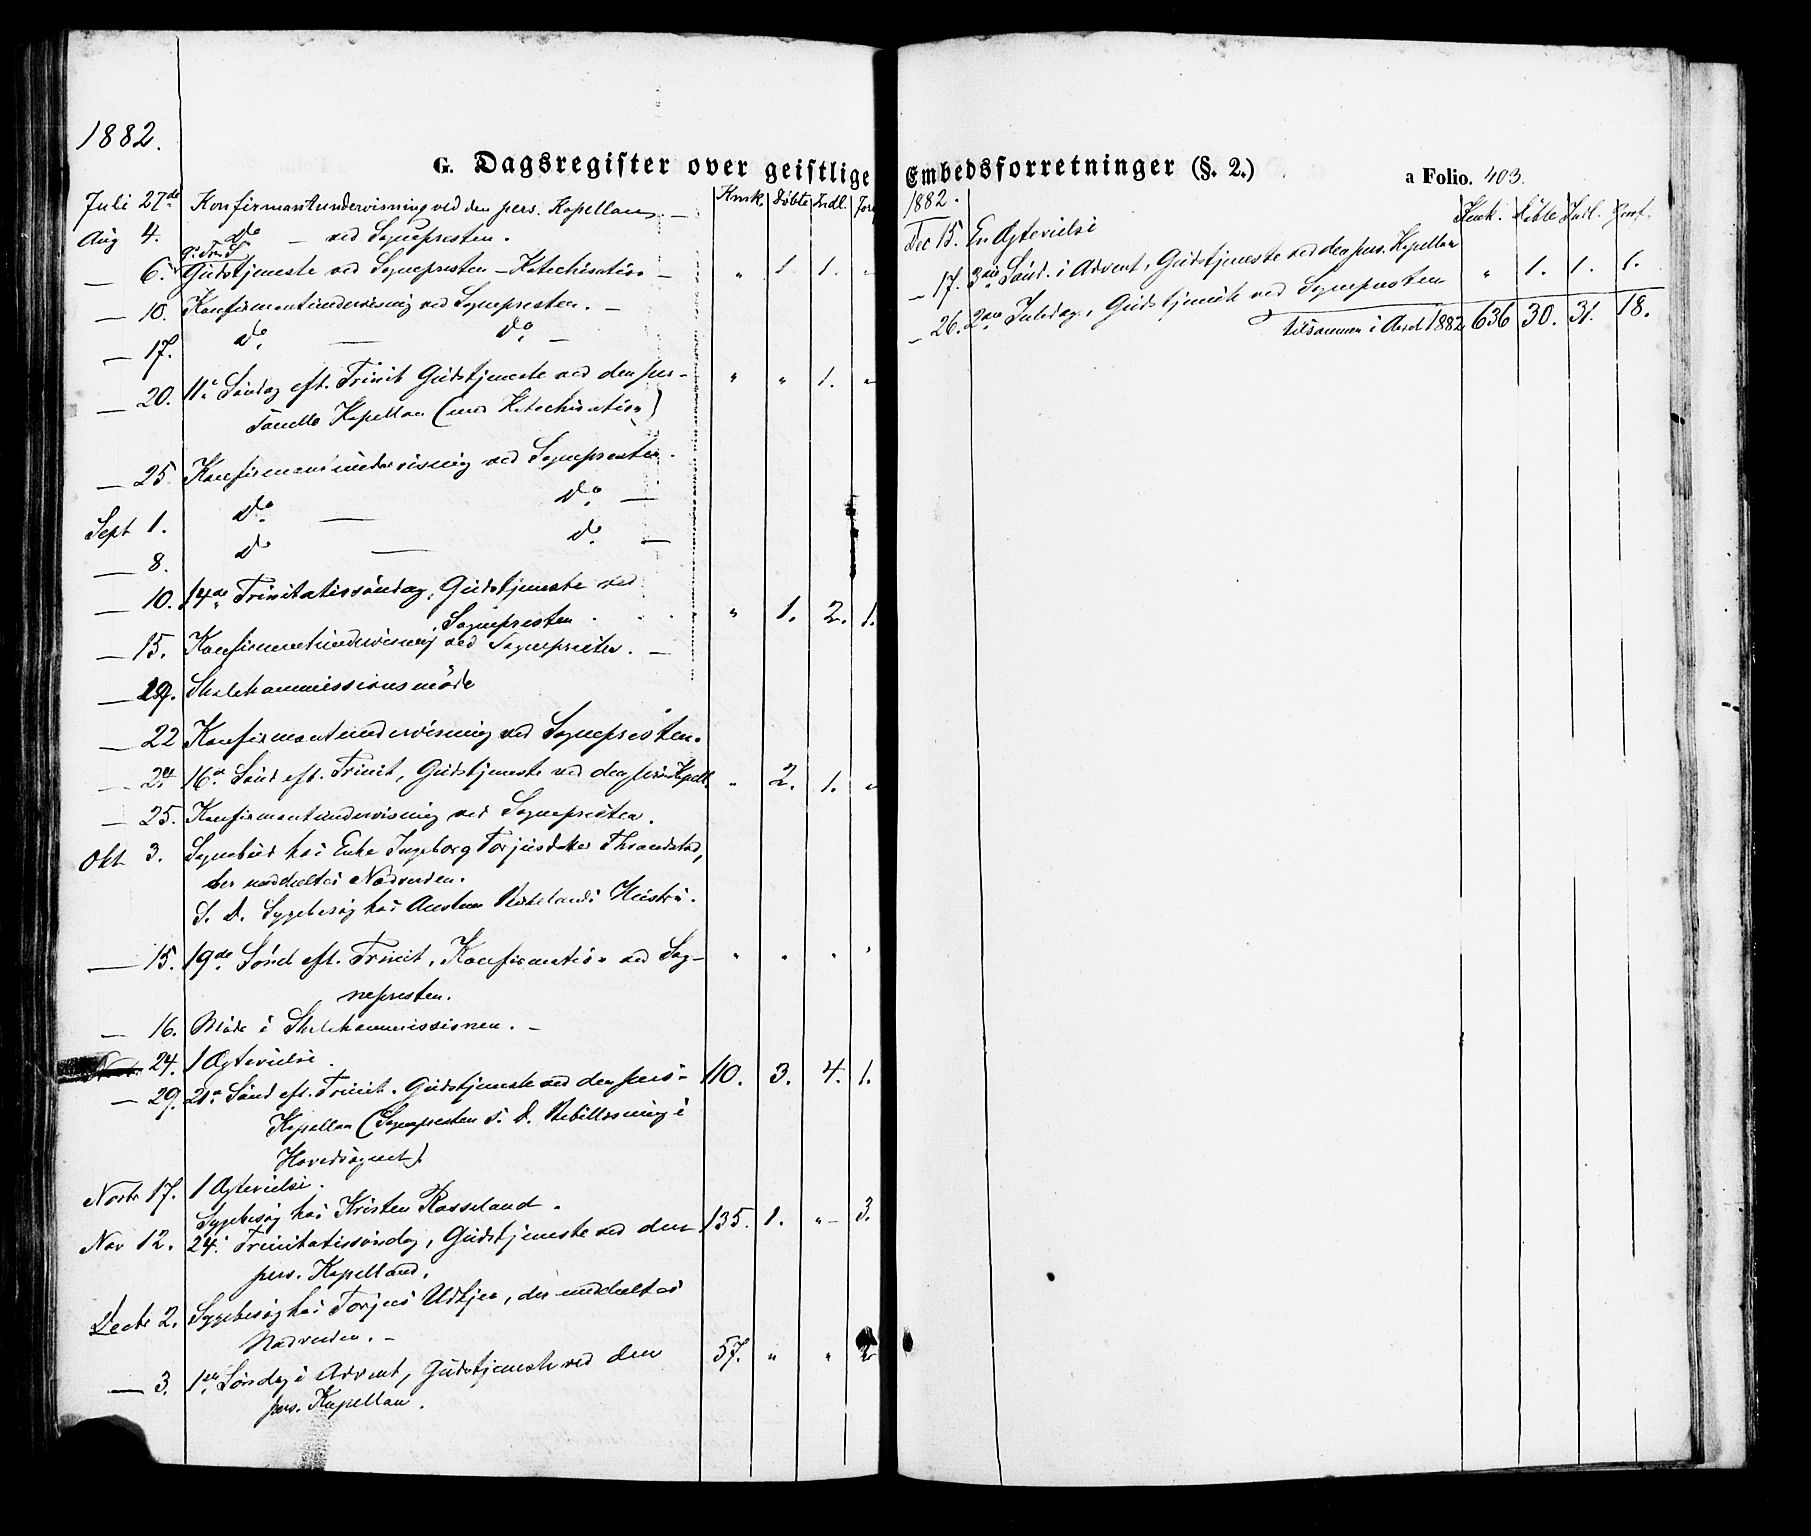 1882.
G. Dagsregister over geistlige Embedsforretninger (§. 2.) a Folio. 403.
Døbte Indl.
Juli 27de Konfirmantundervisning ved den pers. Kapellan. —
Aug 4. do — ved Sognepresten.
— 6. Gudstjeneste ved Sognepresten – Katechisation — " 1. 1. "
— 10. Konfirmantundervisning ved Sognepresten. —
— 17. do. — do. —
— 20. 11te Søndag eft. Trinit Gudstjeneste ved den per- " " 1. "
sonelle Kapellan (med Katechisation)
— 25. Konfirmantundervisning ved Sognepresten.
Sept 1. do. — do. —
— 8. do — do. —
— 10. 14de Trinitatissøndag, Gudstjeneste ved
Sognepresten . . . " 1. 2. 1.
— 15. Konfirmantundervisning ved Sognepresten. —
— 19. Skolekommissionsmöde
— 22 Konfirmantundervisning ved Sognepresten.
— 24 16de Sønd eft. Trinit, Gudstjeneste ved den pers Kapell. " 2. 1. "
— 25. Konfirmantundervisning ved Sognepresten.
Okt 3. Sognebud hos Enke Ingeborg Torjusdatter Thrandstad,
der meddeltes Nadverden.
S. D. Sygebesøg hos Hustru.
— 15. 19de Sønd eft. Trinit, Konfirmation ved Sog- " " " "
nepresten.
— 16. Möde i Skolekommissionen. —
24. 1 Ægtevielse.
— 29. 21de Sønd eft. Trinit. Gudstjeneste ved den pers. 110. 3. 4. 1.
Kapellan (Sognepresten S. D. Bibellæsning i
Hovedsognet).
Novbr 17. 1 Ægtevielse.
Sygebesøg hos Kristen Rosseland.
Nov 12. 24. Trinitatissøndag, Gudstjeneste ved den 135. 1. " 3.
pers. Kapelland.
Decbr 2. Sygebesøg hos Torjus Udtjør, der meddeltes
Nadverden. —
— 3. 1ste Søndag i Advent, Gudstjeneste ved den 57. " " 2
pers. Kapellan.
1882.
Døbte Indl.
Dec 15. En Ægtevielse
— 17. 3die Sønd. i Advent, Gudstjeneste ved den pers. Kapellan
— 26. 2den Juledag, Gudstjeneste ved Sognepresten " 1. 1. 1.
tilsammen i Aaret 1882 636 30. 31. 18.